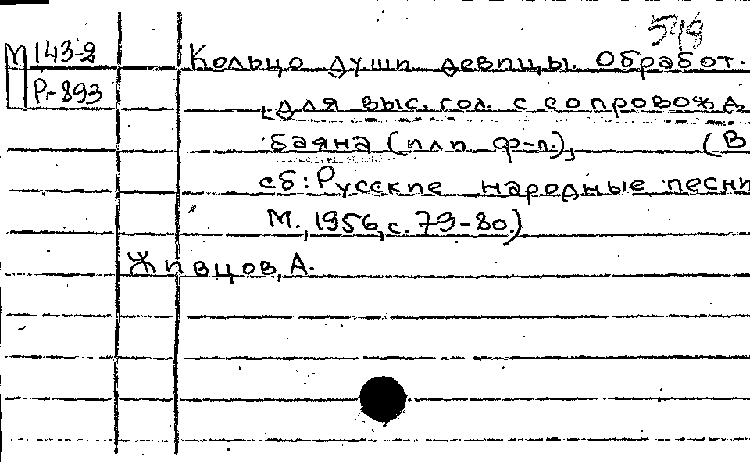 549
М 143-2 Кольцо души девицы. Обработ.
Р-893 для выс. гол. с сопровожд.
баяна (или ф-п.), (В
сб: Русские народные песни
М., 1956, с. 79-80.)
Живцов, А.